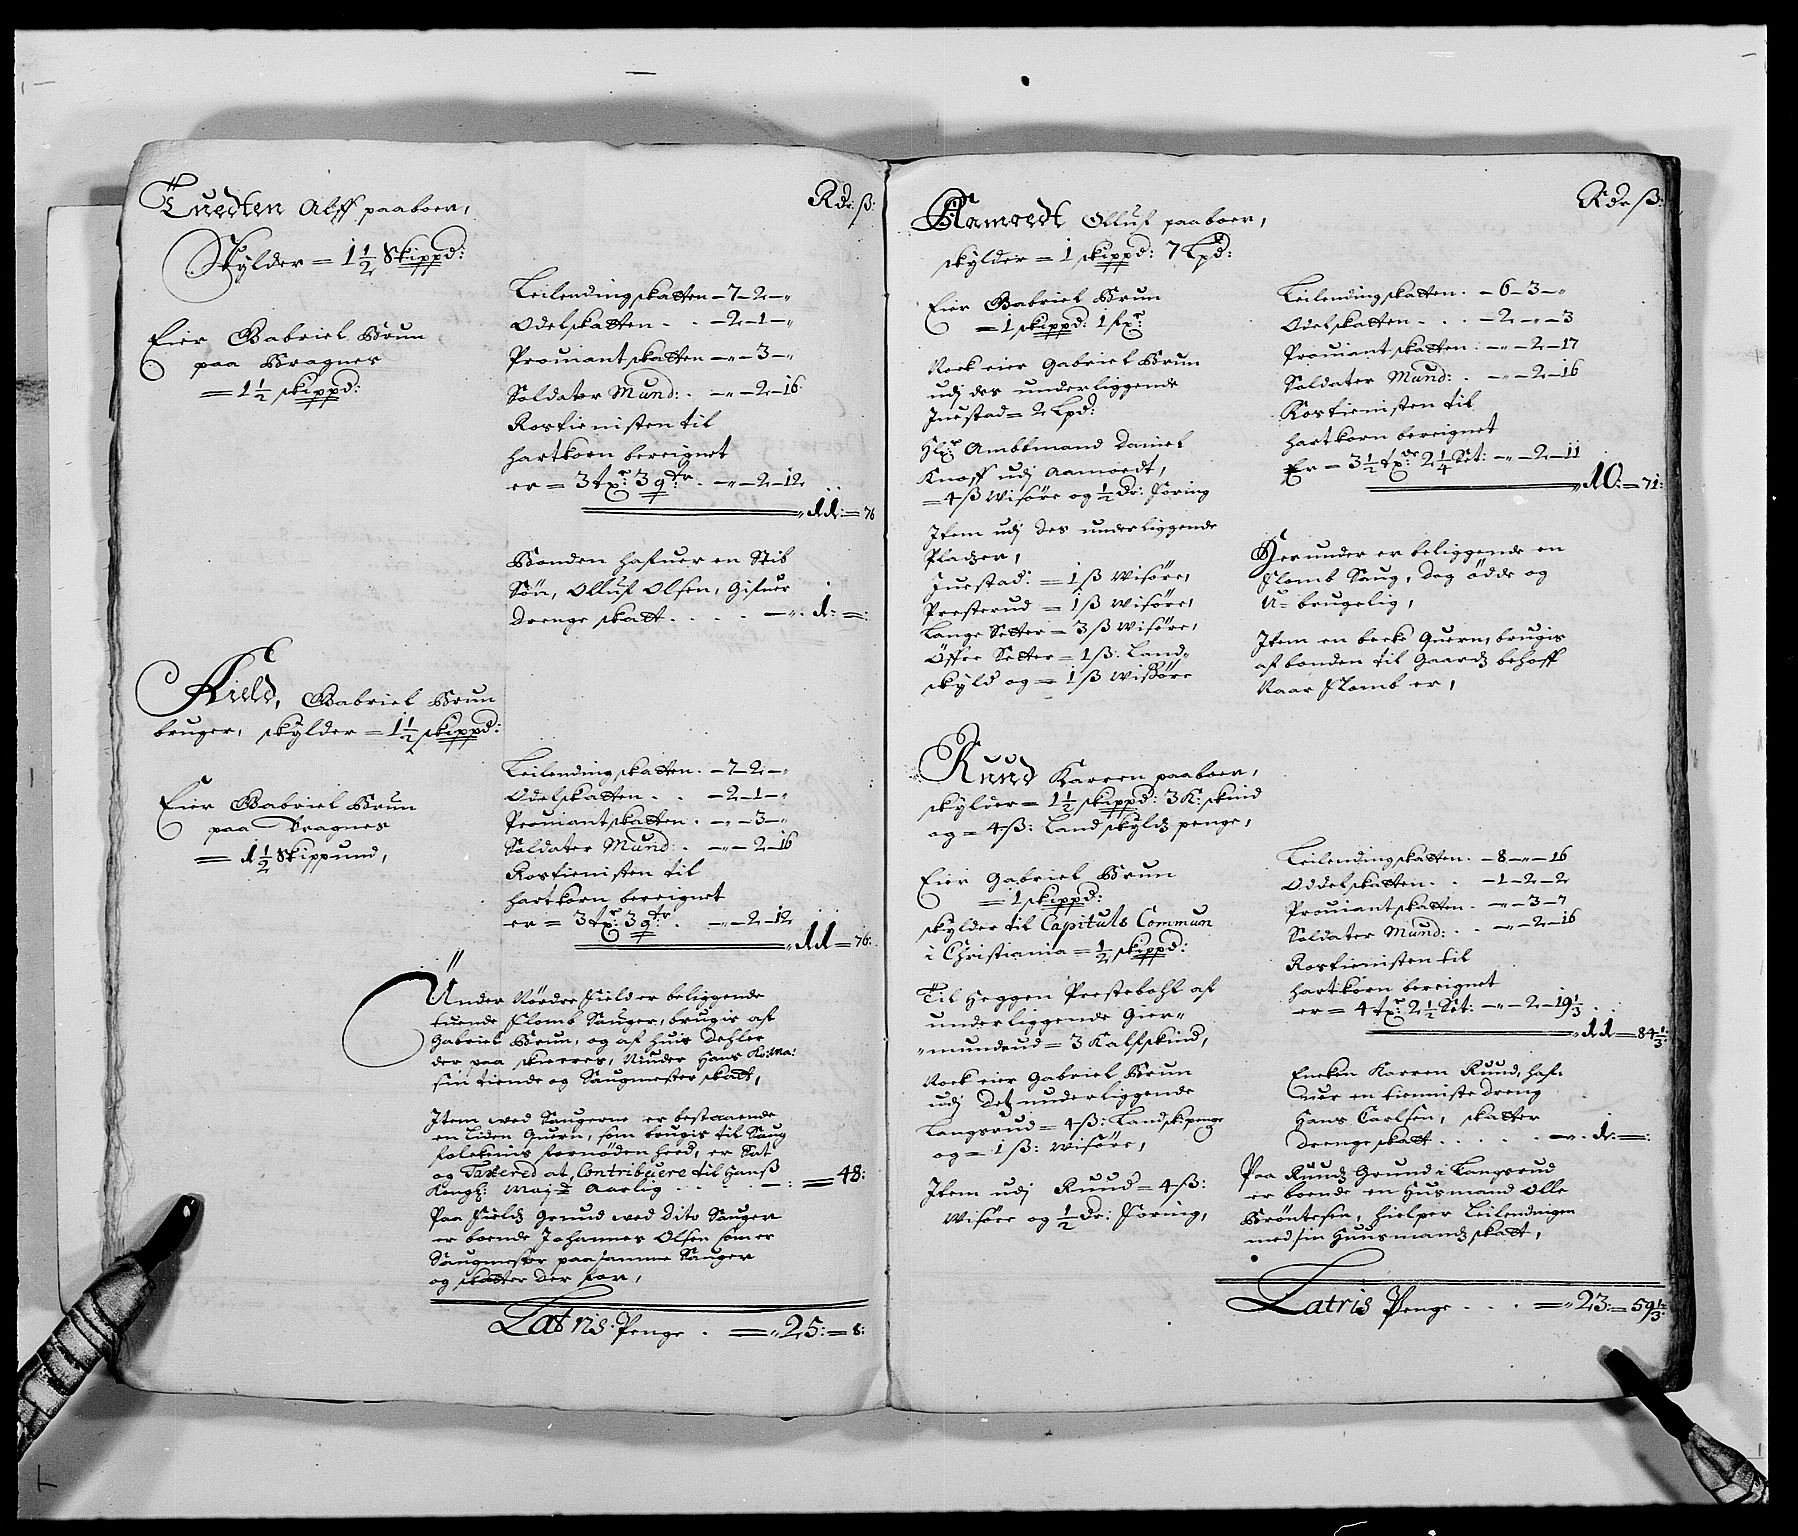 Tuedten Alff paaboer,
Skylder = 1½ Skippd:
Eier Gabriel Brun
paa Bragnes
= 1½ skippd:
Rdr: ß:
Leilendingskatten - 7 - 2 - "
Odelskatten . . - 2 - 1 - "
Prouiantskatten - " - 3 - "
Soldater Mund: . - " - 2 - 16
Rostienisten til
hartkorn bereignet
er = 3 tx: 3 qtr . - " - 2 - 12
11: = 76
Bonden hafuer en Stib
Søn, Olluf Olsen, Gifuer
Drenge skatt . . . . - " 1: =:
Field, Gabriel Brun
bruger, skylder = 1½ skippd:
Eier Gabriel Brun
paa Bragnes
= 1½ Skippund,
Leilendingskatten . - 7 - 2 - "
Odelskatten . . - 2 - 1 - "
Prouiantskatten . - " - 3 - "
Soldater Mund: . - " - 2 - 16
Rostienisten til
hartkorn bereignet
er = 3 tx: 3 qtr . - " - 2 - 12
11 = 76:
Under Nordre Field er beliggende
tuende flomb Sauger, brugis aff
Gabriel Brun, og af huis Dehler
der paa skieeres, Niuder Hans Ko: Ma:
sin tiende og Saugmester skatt,
Item wed Saugerne er bestaaende
en liden Quern, som brugis til Saug
folckenis fornøden heed, er Sat
og Taxered at Contribuere til Hanß
Kongl: Maj: Aarlig . . . - : = 48:
Paa Fields Grund wed Dito Sauger
er boende Johannes Olsen som er
Saugmester paa samme Sauger
og skatter der for,
Latris Penge . = " 25: = 8:
Aamoedt Olluf paaboer,
skylder = 1 skippd: 7 Lpd:
Rdr: ß:
Eier Gabriel Brun
= 1 skippd: 1 fx:
Nock eier Gabriel Brun
udj des underliggende
Juestad = 2 Lpd:
Hr: Ambtmand Daniel
Knoff udj Aamoedt,
= 4 ß Wisøre og ½ Dr: Foring
Item udj des underliggende
Pladzer,
Juestad: = 1 ß Wisøre,
Presterud = 1 ß Wisøre,
Lange Setter = 3 ß Wisøre,
Øffre Setter = 1 ß: Land-
skyld og = 1 ß Wissøre
Leilendingskatten . - 6 - 3 - "
Odelskatten . . . - 2 - " - 3
Prouiantskatten . - " - 2 - 17
Soldater Mund: . - " - 2 - 16
Rostienisten til
hartkorn bereignet
Er = 3½ tx: 2¼ Set: - " - 2 - 11
10: = 71:
Herunder er beliggende en
flomb Saug, dog ødde og
U-brugelig,
Item en becke Quern, brugis
af bonden til Gaards behoff
Naar flomb er,
Ruud Karren paaboer,
skylder = 1½ skippd: 3 K: skind
og = 4 ß: Landskylds penge,
Eier Gabriel Brun
= 1 skippd:
skylder til Capituls Commun
i Christiania = ½ skippd:
Til Heggen Prestebohl af
underliggende Gier-
-mundrud = 3 Kalfskind,
Nock eier Gabriel Brun
udj Dets underliggende
Langerud = 4 ß: Landsk: penge
og = 1 ß: Wisøre,
Item udj Ruud = 4 ß:
Wisøre og ½ Dr: Foring,
Leilendingskatten . - 8 - " - 16
Oddelskatten . . - 1 - 2 - 2
Prouiantskatten . - " - 3 - 7
Soldater Mund: . . - " - 2 - 16
Rostienisten til
hartkorn bereignet
er = 4 tx: 2½ Set: - " - 2 - 19⅓
11 = 84⅓:
Encken Karren Ruud, haf-
uer en tienniste dreng
Hans Carlsen, skatter
Drengeskatt . . . . . - " . 1: =:
Paa Ruuds Grund i Langerud
er boende en Husmand Olle
Brøntesen, hielper Leilendingen
med sin Huusmands skatt,
Latris Penge . . . = " 23: = 59⅓: